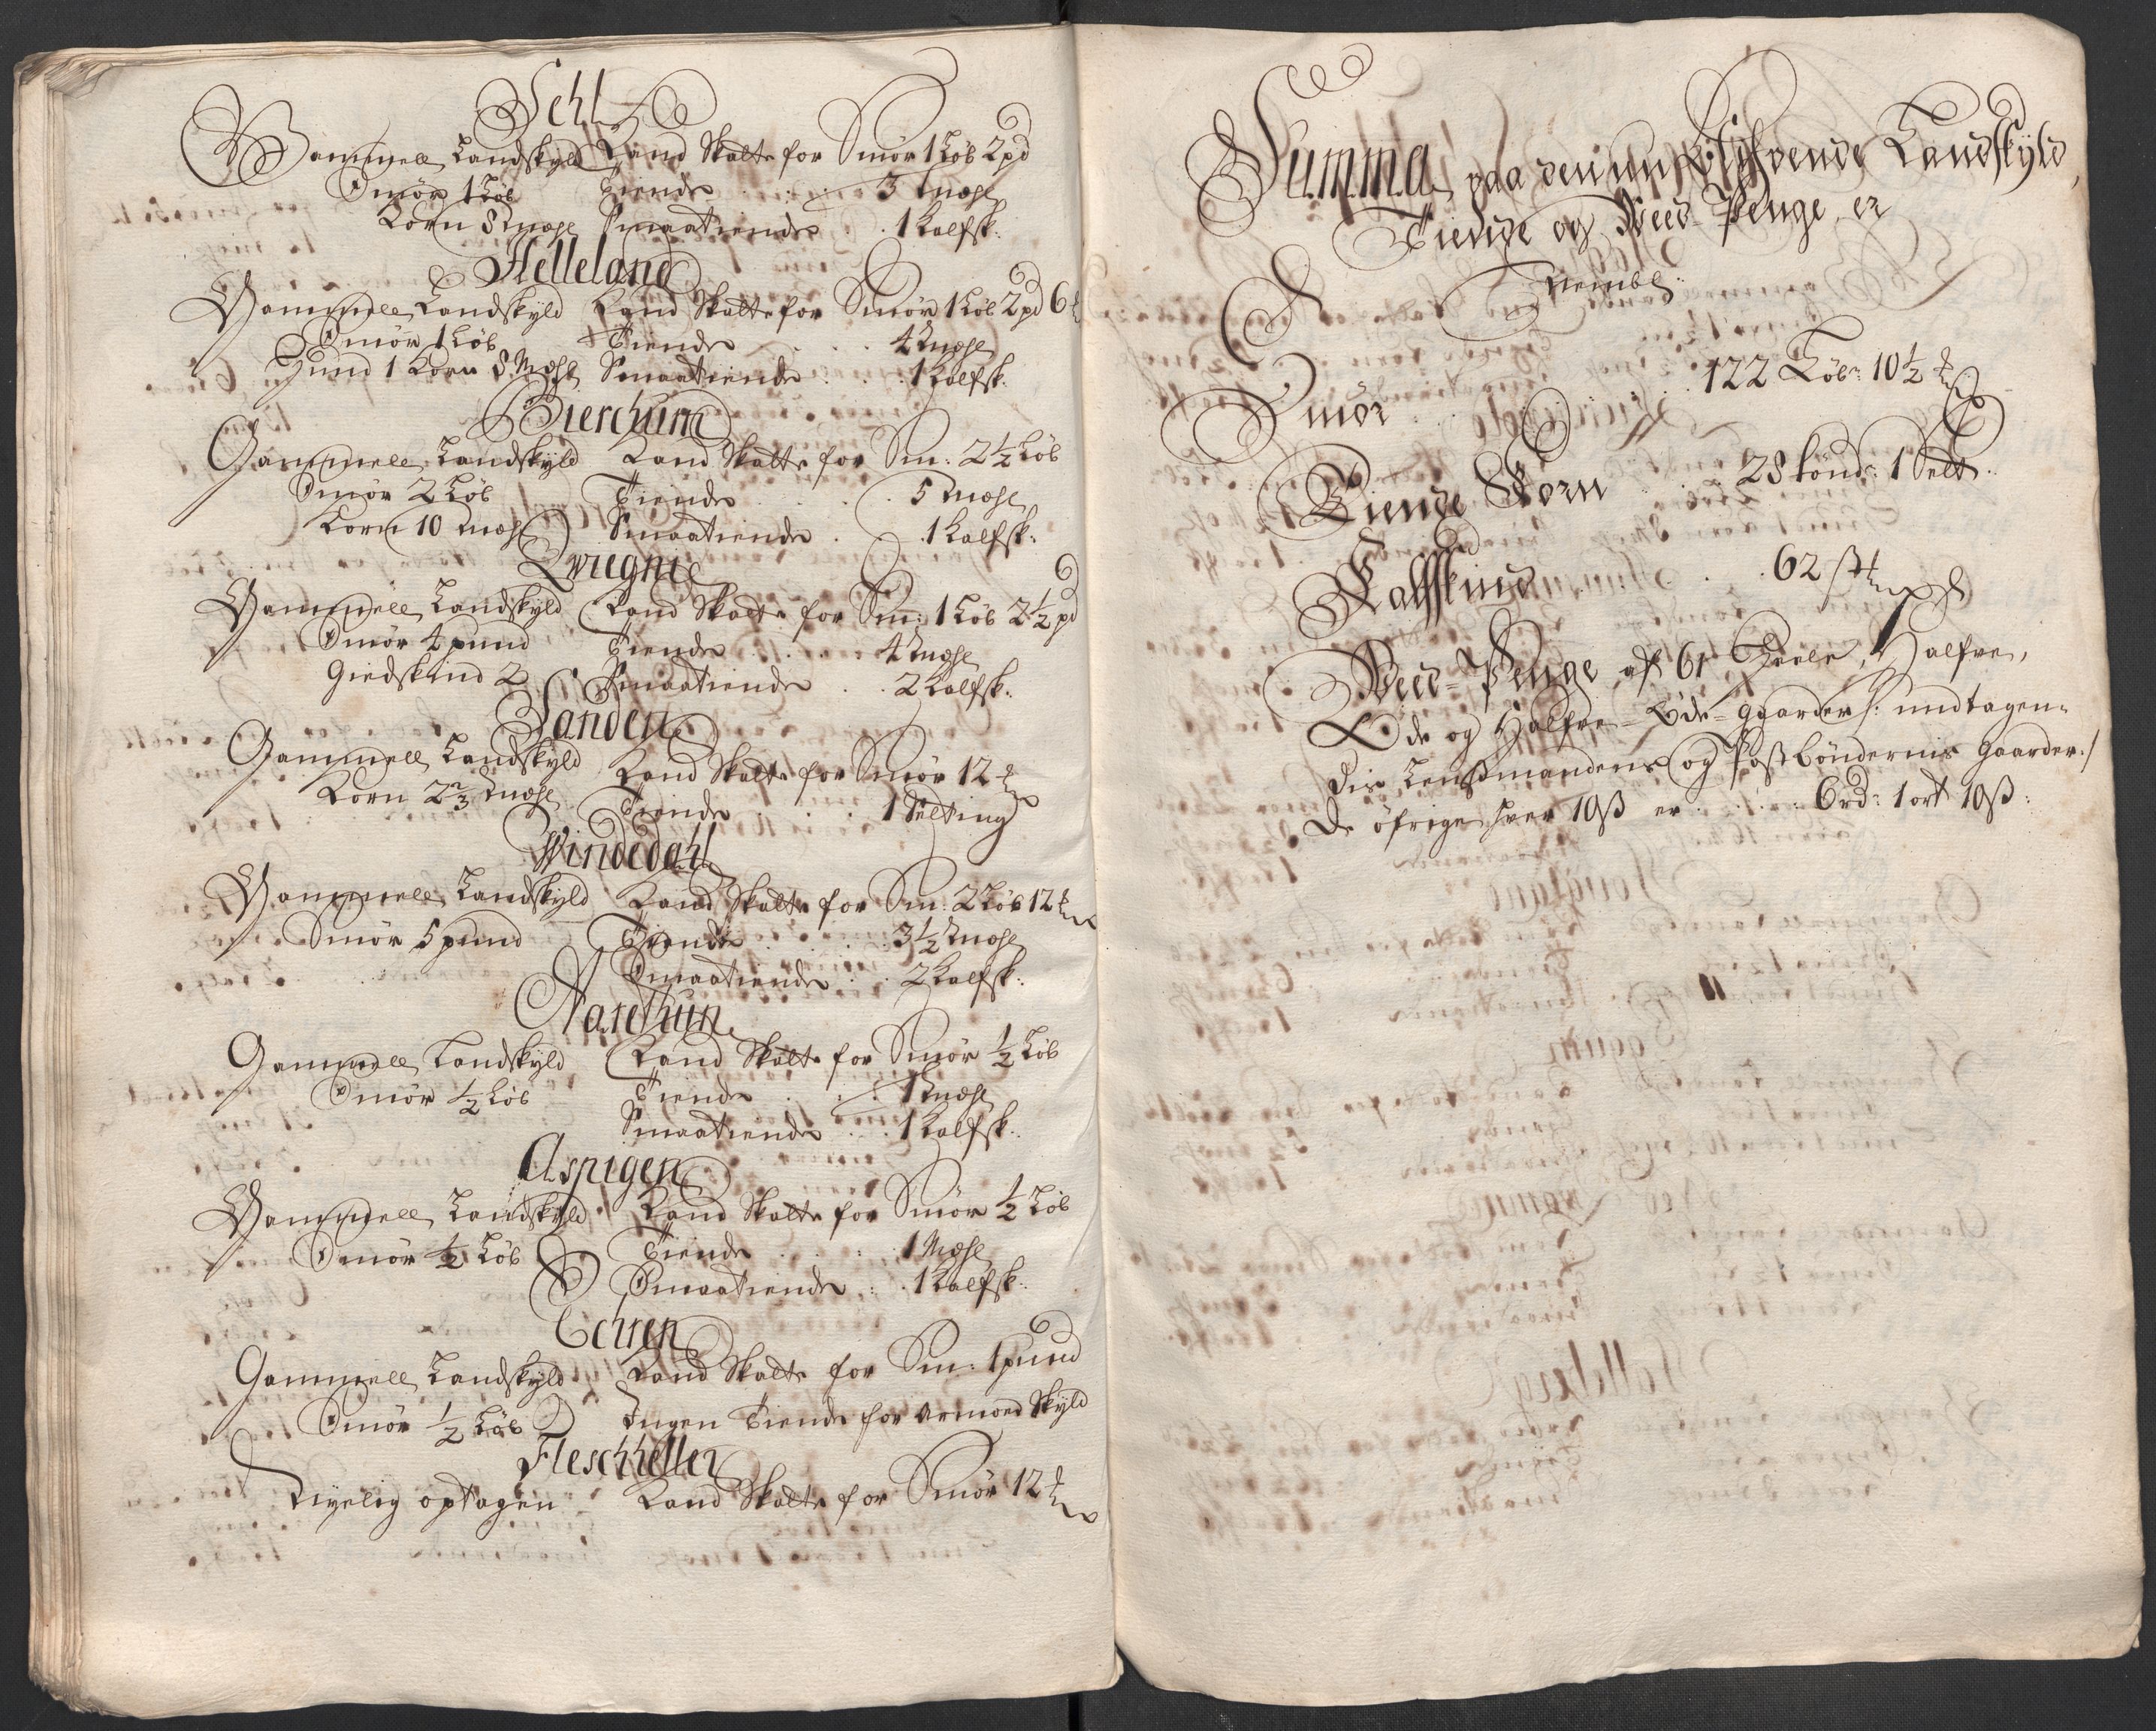 Sehl
Gammell Landskyld Land Skatte for Smør 1 Løb 2 pd
Smør 1 Løb Tiende 3 Mæhl
Korn 8 mæhl Smaatiende 1 Kalfsk:
Helleland
Gammell Landskyld Land Skatte for Smør 1 Løb 2 pd 6
Smør 1 Løb Tiende 4 Mæhl
Hund 1 Korn 8 Mæhl Smaatiende 1 Kalfsk:
Bierchum
Gammell Landskyld Land Skatte for Sm: 2 1/2 Løb
Smør 2 Løb Tiende 5 Mæhl
Korn 10 mæhl Smaatiende 1 Kalfsk:
Qwegnie
Gammell Landskyld Land Skatte for Sm: 1 Løb 2 1/2 pd
Smør 4 pund Tiende 4 Mæhl
Giedskind 2 Smaatiende 2 Kalfsk:
Sanden
Gammell Landskyld Land Skatte for Smør 12
Korn 2 2/3 Mæhl Tiende 1 Selting
Windedahl
Gammell Landskyld Land Skatte for Sm: 2 Løb 12
Smør 5 pund Tiende 3 1/2 Mæhl
Smaatiende 2 Kalfsk:
Aarethun
Gammell Landskyld Land Skatte for Smør 1/2 Løb
Smør 1/2 Løb Tiende 1 Mæhl
Smaatiende 1 Kalfsk:
Aspigen
Gammell Landskyld Land Skatte for Smør 1/2 Løb
Smør 1/2 Løb Tiende 1 Mæhl
Smaatiende 1 Kalfsk:
Echren
Gammell Landskyld Land Skatte for Sm: 1 pund
Smør 1/2 Løb Ingen Tiende for Armoed Skyld
Fleschheller
Nyelig optagen Land Skatte for Smør 12
Summa paa den nu Blifvende Landskyld,
Tiende og Weed-Penge er
Nembl:
Smør 122 Løb: 10 1/2
Tiende Korn 28 tønd: 1 Selt
Kalfskind 62
Weed-Penge af 61 Heele, Halfve,
Øde og Halfve-Øde-Gaarder /: undtagen
Die Lensmandens og Postbøndernis Gaarder:/
De øfrige hver 10 ß er 6 rd: 1 ort 10 ß: